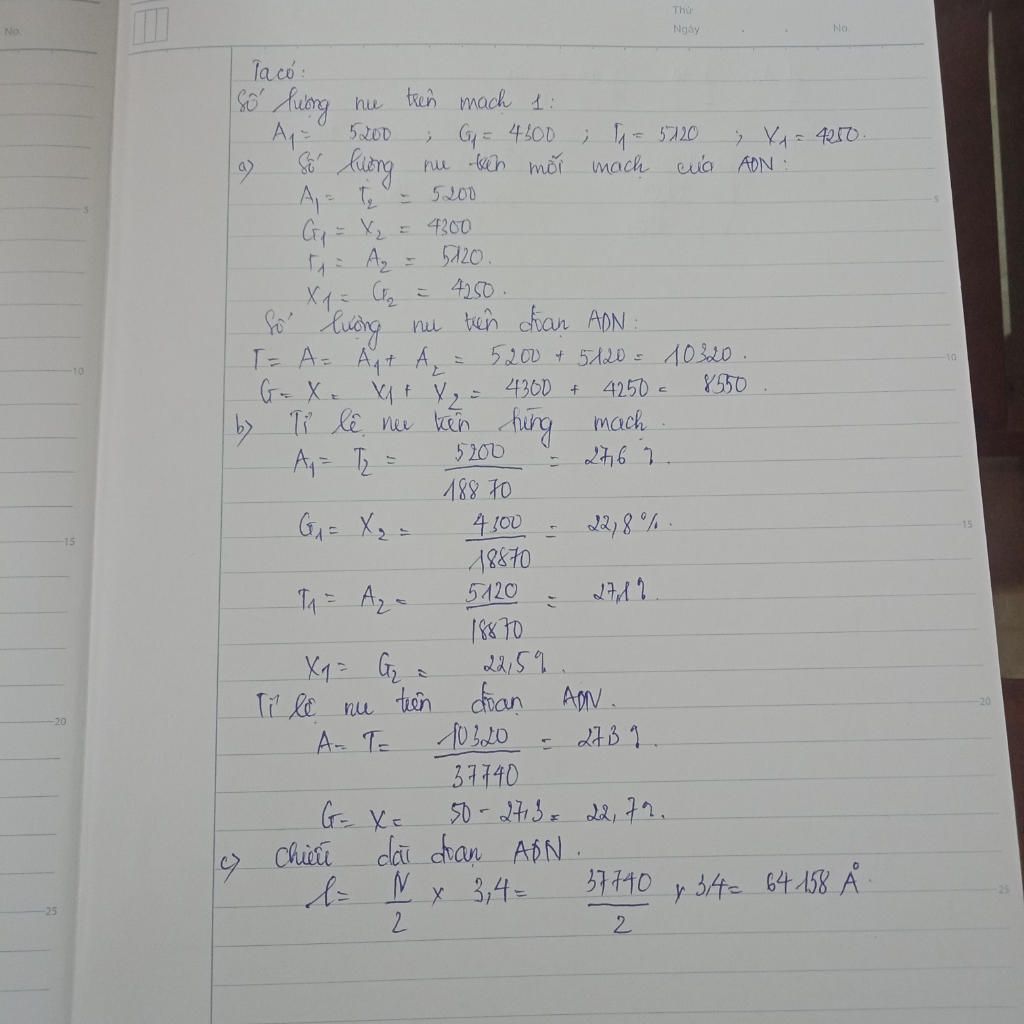 No.
Thứ
Ngày . . No.
Ta có:
Số lượng nu trên mạch 1:
A₁ = 5200 ; G₁ = 4300 ; T₁ = 5120 ; X₁ = 4250.
a) Số lượng nu trên mỗi mạch của ADN:
A₁ = T₂ = 5200
G₁ = X₂ = 4300
T₁ = A₂ = 5120.
X₁ = G₂ = 4250.
Số lượng nu trên đoạn ADN:
T = A = A₁ + A₂ = 5200 + 5120 = 10320.
G = X = X₁ + X₂ = 4300 + 4250 = 8550.
b) Tỉ lệ nu trên từng mạch.
A₁ = T₂ = 5200/18870 = 27,6 %.
G₁ = X₂ = 4300/18870 = 22,8 %.
T₁ = A₂ = 5120/18870 = 27,1 %.
X₁ = G₂ = 22,5 %.
Tỉ lệ nu trên đoạn ADN.
A = T = 10320/37740 = 27,3 %.
G = X = 50 - 27,3 = 22,7 %.
c) Chiều dài đoạn ADN.
l = N/2 x 3,4 = 37740/2 x 3,4 = 64158 Å.
5
10
15
20
25
5
10
15
20
25